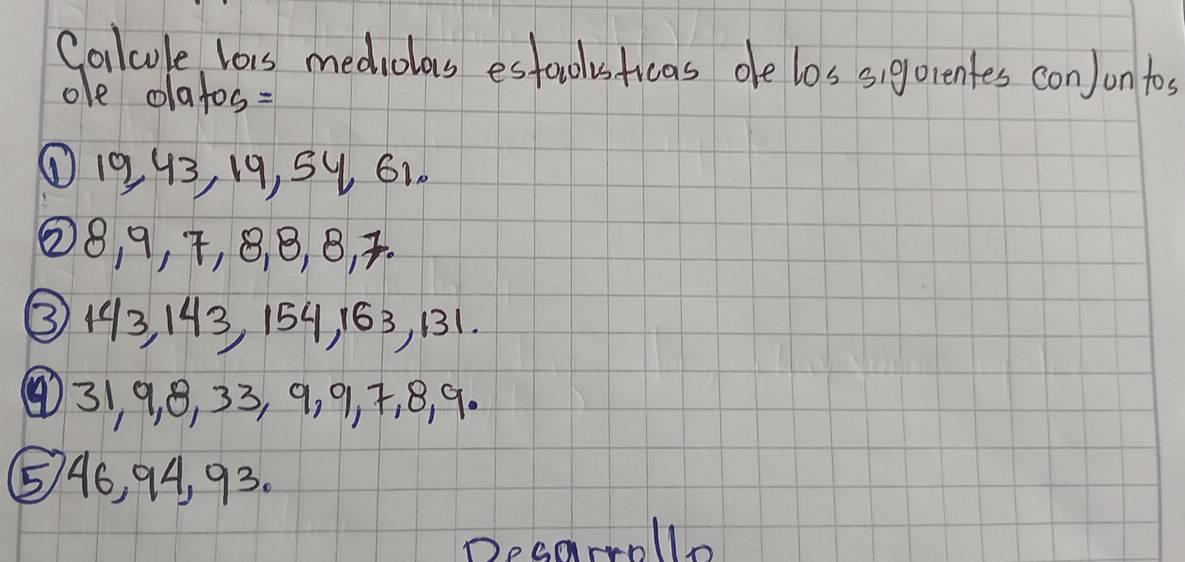 Calcule las medidas estadísticas de los siguientes conjuntos
de datos=
① 19, 43, 19, 54, 61.
② 8, 9, 7, 8, 8, 8, 7.
③ 143, 143, 154, 163, 131.
④ 31, 9, 8, 33, 9, 9, 7, 8, 9.
⑤ 46, 94, 93.
Desarrollo